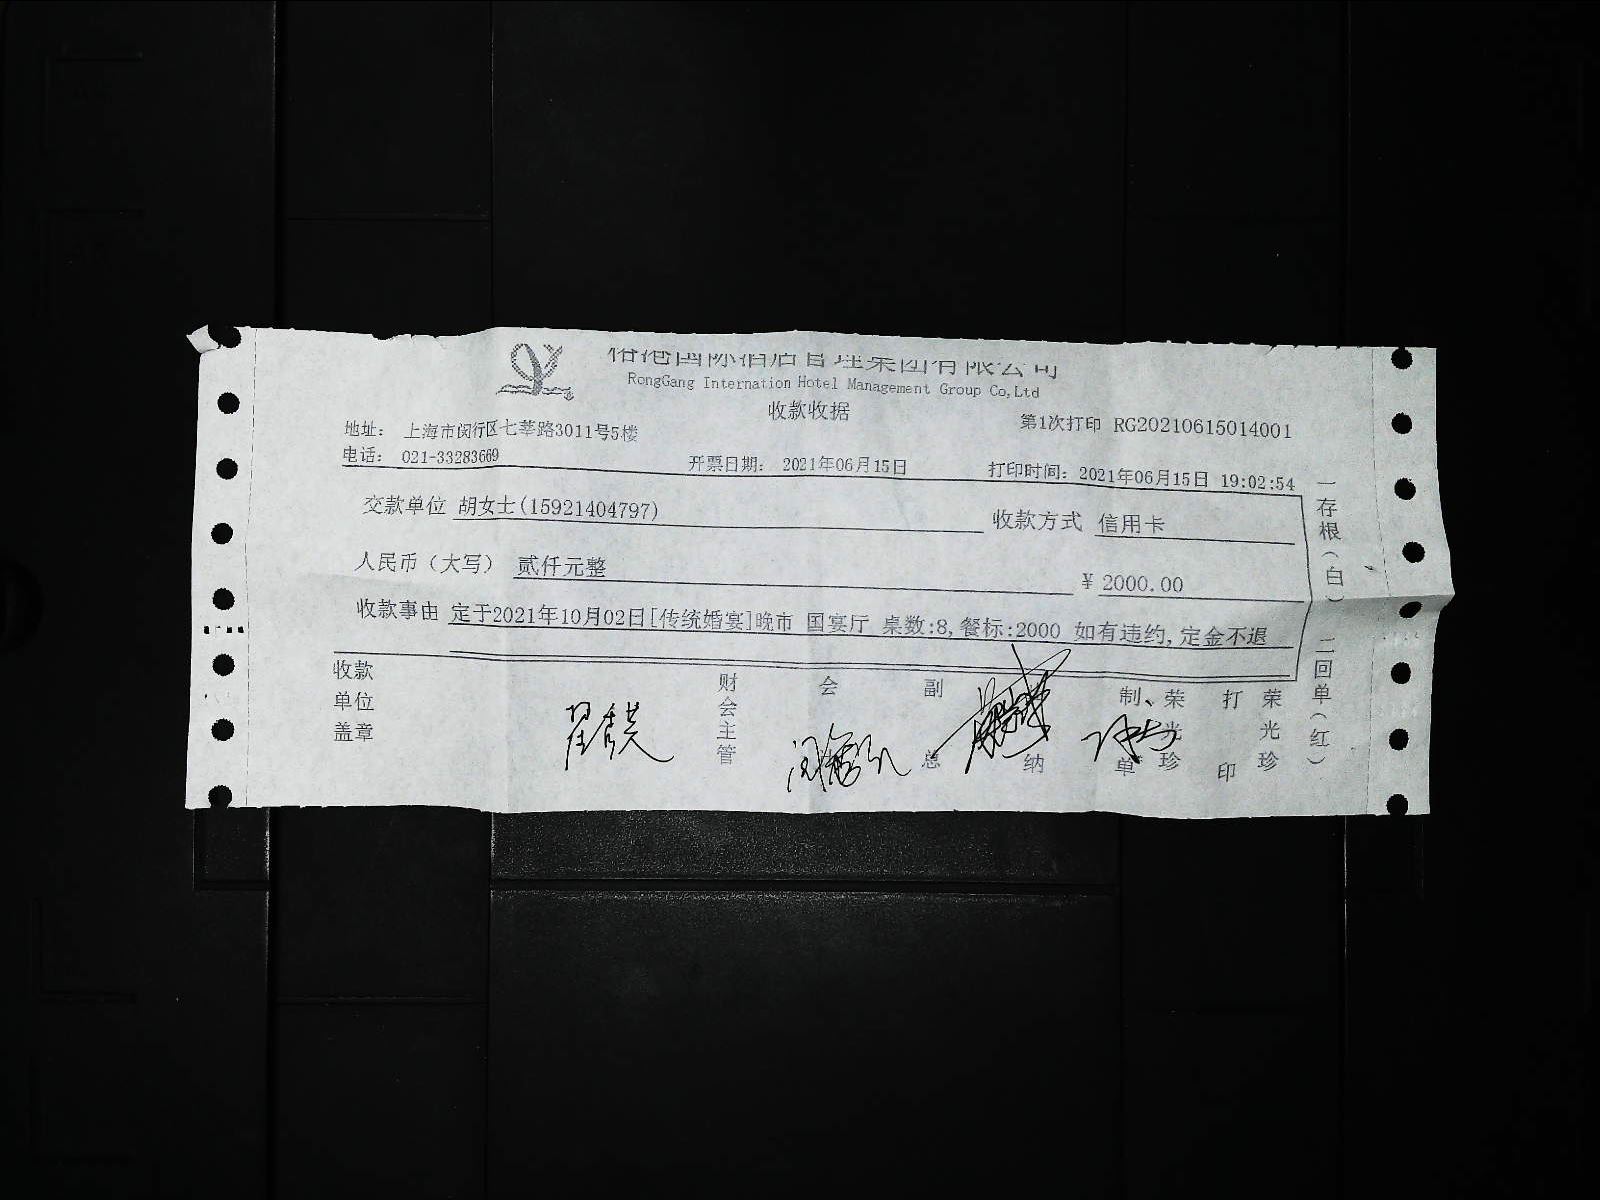 国际酒店管理集团有限公司
RongGang Internation Hotel Management Group Co,Ltd
收款收据
地址： 上海市闵行区七莘路3011号5楼
第1次打印 RG20210615014001
电话： 021-33283669
开票日期： 2021年06月15日
打印时间：2021年06月15日 19:02:54
交款单位 胡女士(15921404797)
收款方式 信用卡
人民币（大写） 贰仟元整
¥ 2000.00
收款事由 定于2021年10月02日[传统婚宴]晚市 国宴厅 桌数:8,餐标:2000 如有违约,定金不退
收款单位盖章
财会主管
会
副总
纳
制单
荣光珍
打印
荣光珍
一存根（白） 二回单（红）